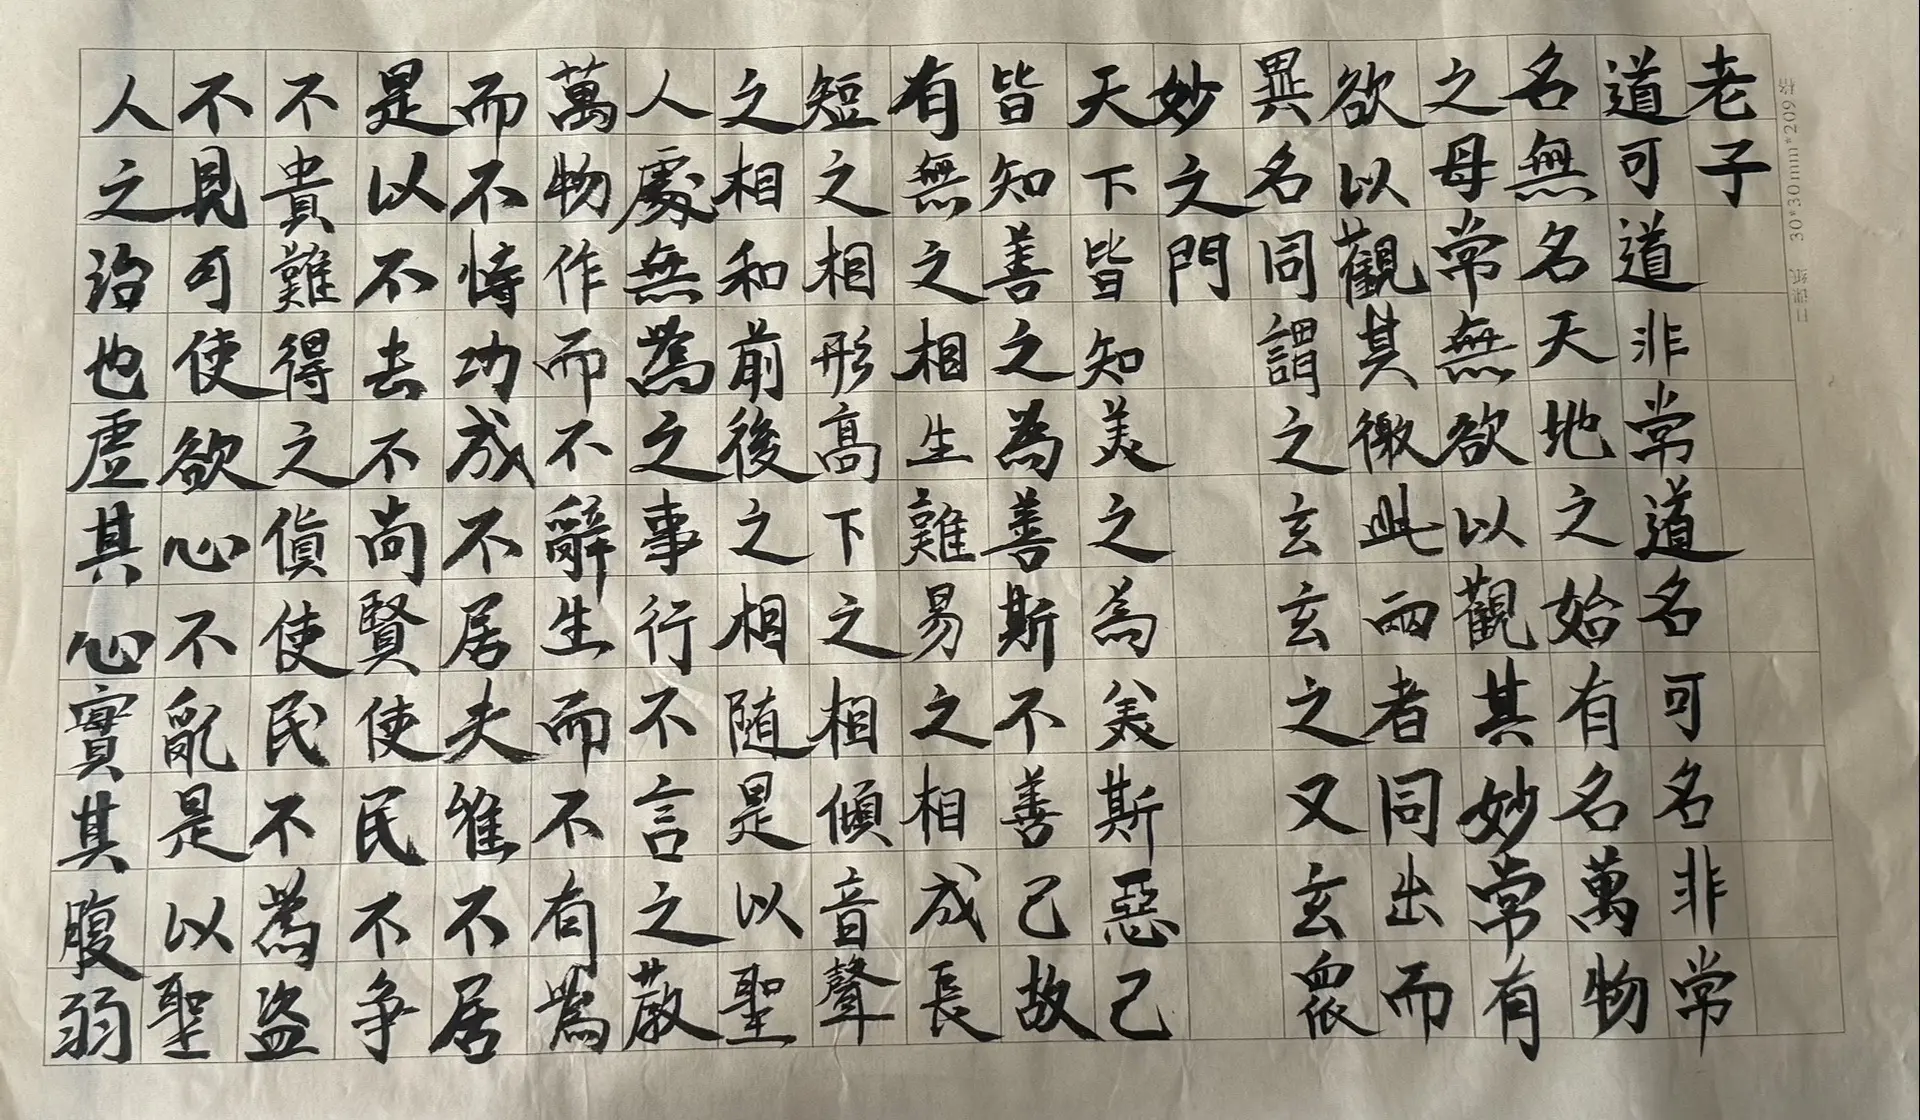 老子
道可道非常道名可名非常
名無名天地之始有名萬物
之母常無欲以觀其妙常有
欲以觀其徼此兩者同出而
異名同謂之玄玄之又玄眾
妙之門
天下皆知美之為美斯惡已
皆知善之為善斯不善已故
有無之相生難易之相成長
短之相形高下之相傾音聲
之相和前後之相随是以聖
人處無為之事行不言之教
萬物作而不辭生而不有為
而不恃功成不居夫惟不居
是以不去不尚賢使民不争
不貴難得之貨使民不為盗
不見可使欲心不亂是以聖
人之治也虛其心實其腹弱
日课纸 30*30mm*209格